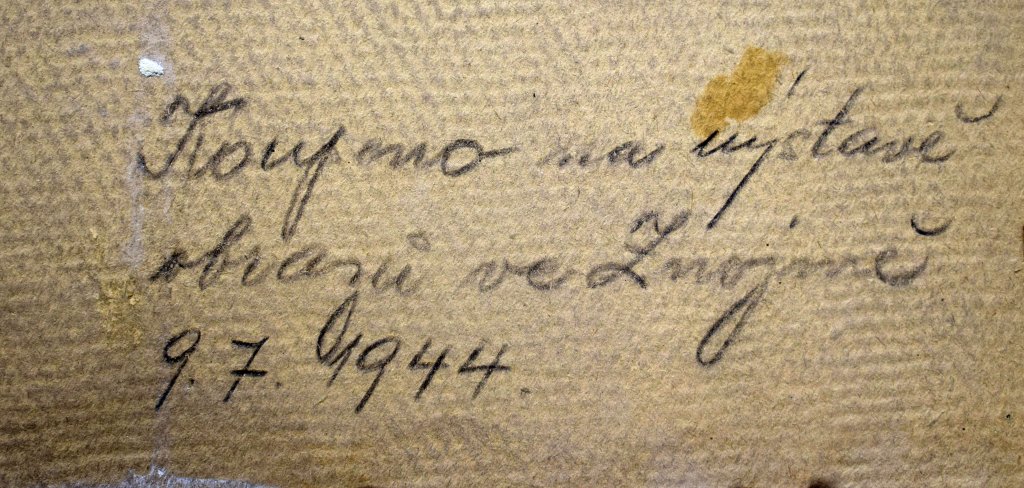 Koupeno na výstavě
obrazů ve Znojmě
9.7.1944.